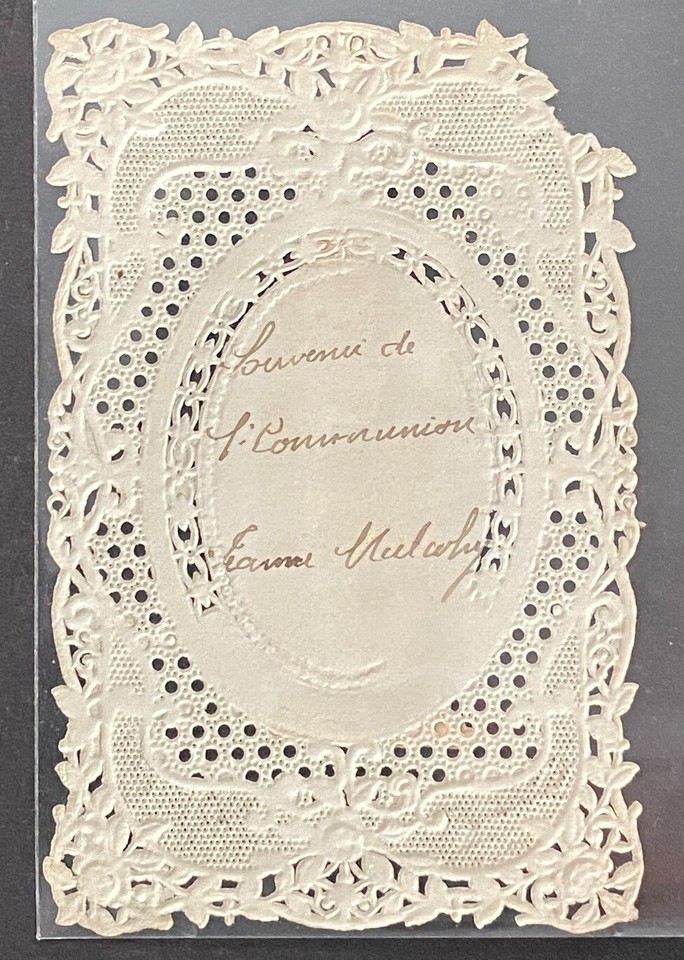 Souvenir de
1ᵉ Communion
Jeanne Mulcahy